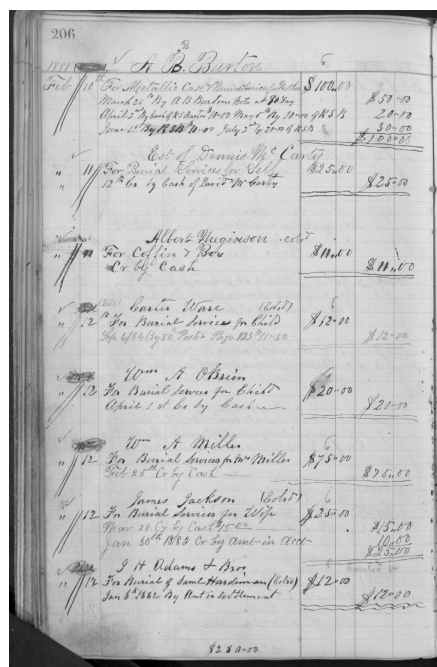 206
B
1881 A. B. Burton
Feb 10th For Metallic Case & Burial Services for Mother $100.00
March 25th By A B Burtons Note at 90 day $50.00
April 2nd By Cash of R S Burton $10.00 May 6th By 10.00 of R S B 20.00
June 1st By R S B 10.00 July 2nd By 20.00 of R S B 30.00
$100.00
Est of Dennis McCarty
" 11 For Burial Services for Self $25.00
" 12th Cr by Cash of David McCarty $25.00
Albert Nugieson cold
" 11 For Coffin & Box $11.00
Cr by Cash $11.00
Carter Ware (Cold)
" 12 For Burial Services for Child $12.00
$12.00
Wm A OBrien
" 12 For Burial Services for Child $20.00
April 1st Cr by Cash $20.00
Wm A Miller
" 12 For Burial Services for Mrs Miller $75.00
Feb 25th Cr by Cash $75.00
James Jackson (Cold)
" 12 For Burial Services for Wife $25.00
Mar 28 Cr by Cash $15.00 $15.00
Jan 30th 1882 Cr by Amt in Acct 10.00
$25.00
J H Adams & Bro
" 12 For Burial of Saml Hardeman (Cold) $12.00
Jan 5th 1882 By Amt in Settlement $12.00
$280.00